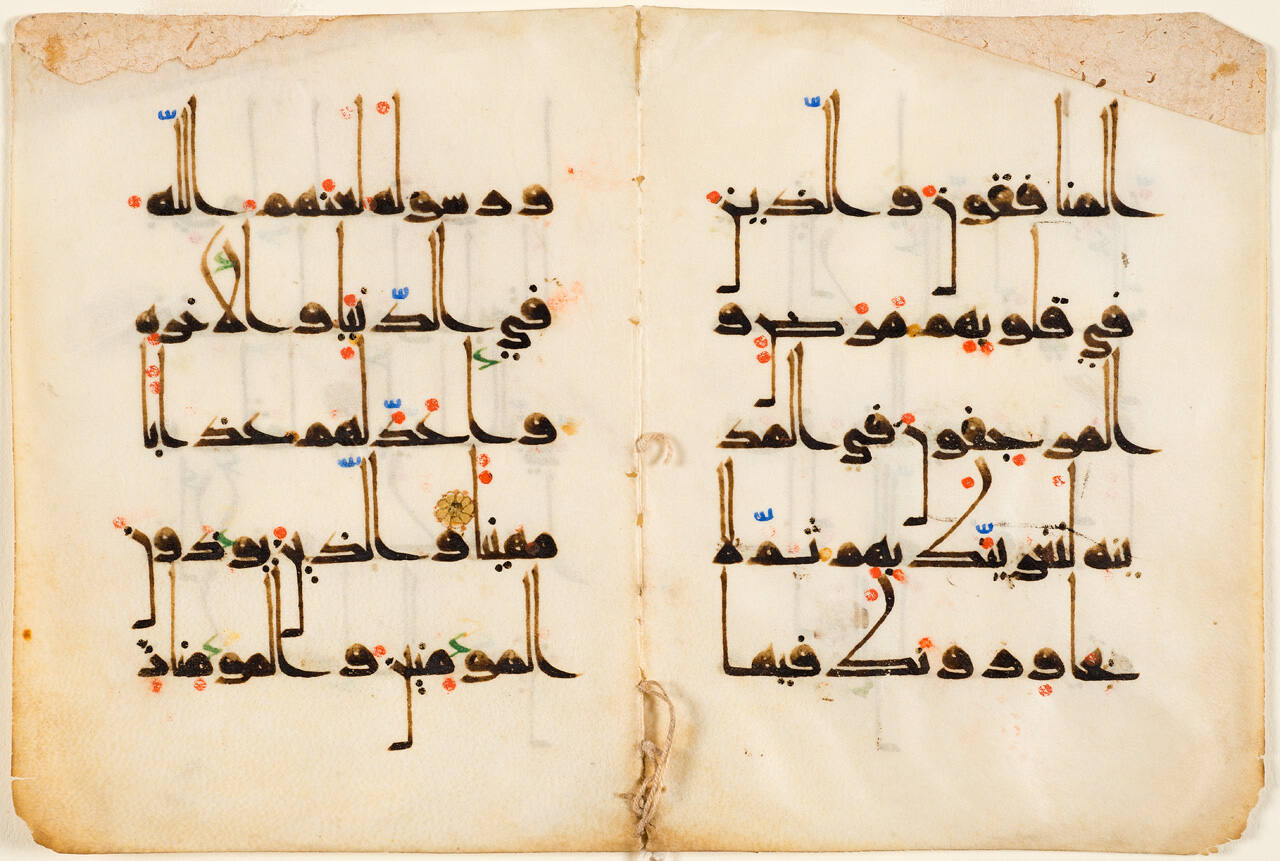 المنافقون والذين
في قلوبهم مرض و
المرجفون في المد
ينه لنغرينك بهم ثمّ لا
يجاورونك فيها
ورسوله لعنهم اللّه
في الدّنيا والاخره
واعدّ لهم عذابا
مهينا والّذين يوذون
المومنين والمومنات